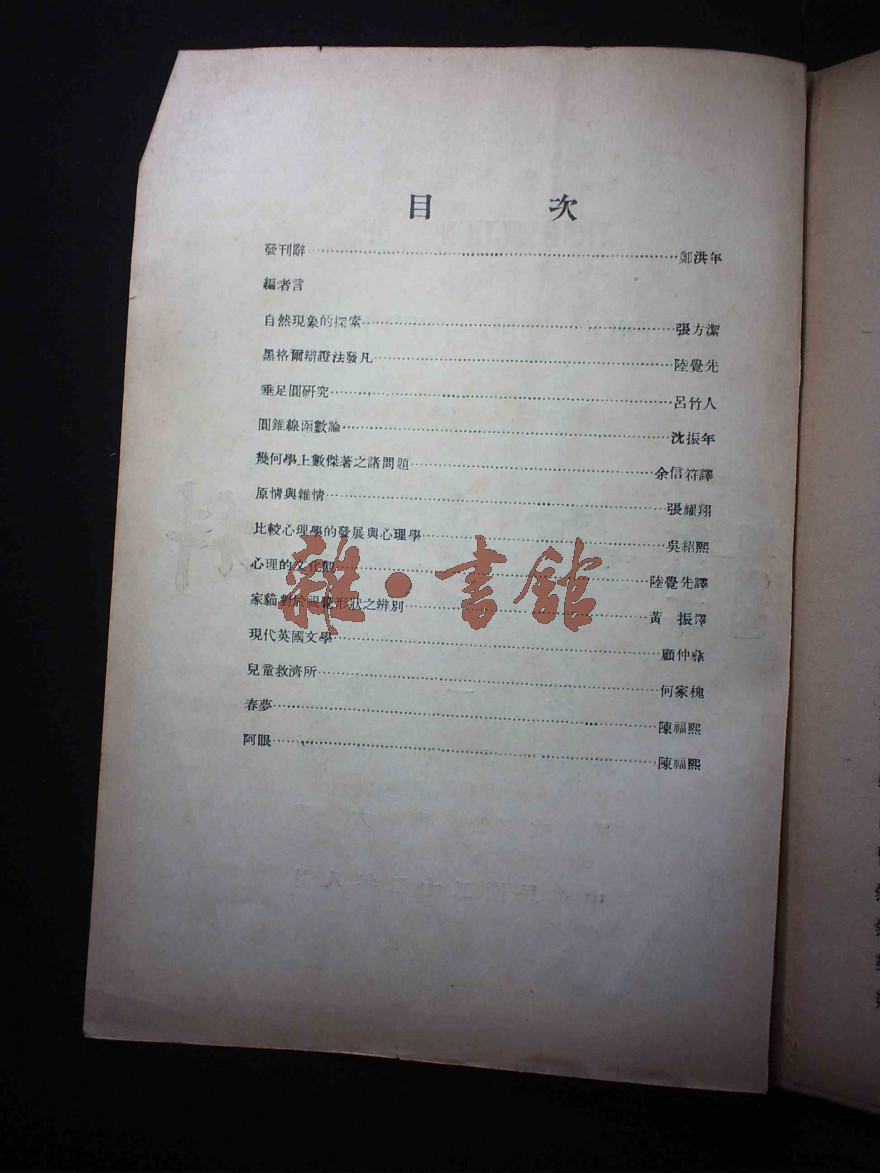 目 次
發刊辭……鄭洪年
編者言
自然現象的探索……張方潔
黑格爾辯證法發凡……陸覺先
垂足圓研究……呂竹人
圓錐線函數論……沈振年
幾何學上數傑著之諸問題……余信符譯
原情與維情……張耀翔
比較心理學的發展與心理學……吳紹熙
心理的文化觀……陸覺先譯
家貓對於視覺形狀之辨別……黃 振譯
現代英國文學……顧仲彝
兒童救濟所……何家槐
春夢……陳福熙
阿眼……陳福熙
雜·書館